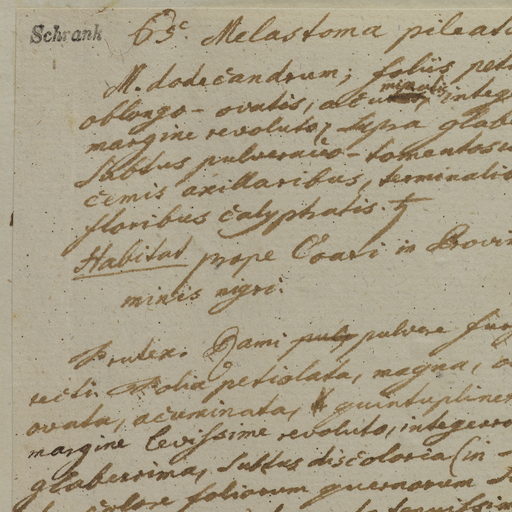 Schrank
63c. Melastoma pileat
M. dodecandrum; foliis peti
oblongo-ovatis, acuminatis, integ
margine revoluto, supra glabe
subtus pulveraceo-tomentosu
cemis axillaribus, terminalis
floribus calyptratis. ♄
Habitat prope Coari in Provin
minis nigri.
Frutex. Rami pulvere fur
recti. Folia petiolata, magna, o
ovata, acuminata, quintupliner
margine levissime revoluto, integerr
glaberrima, subtus discoloria (in
colore foliorum quernorum s